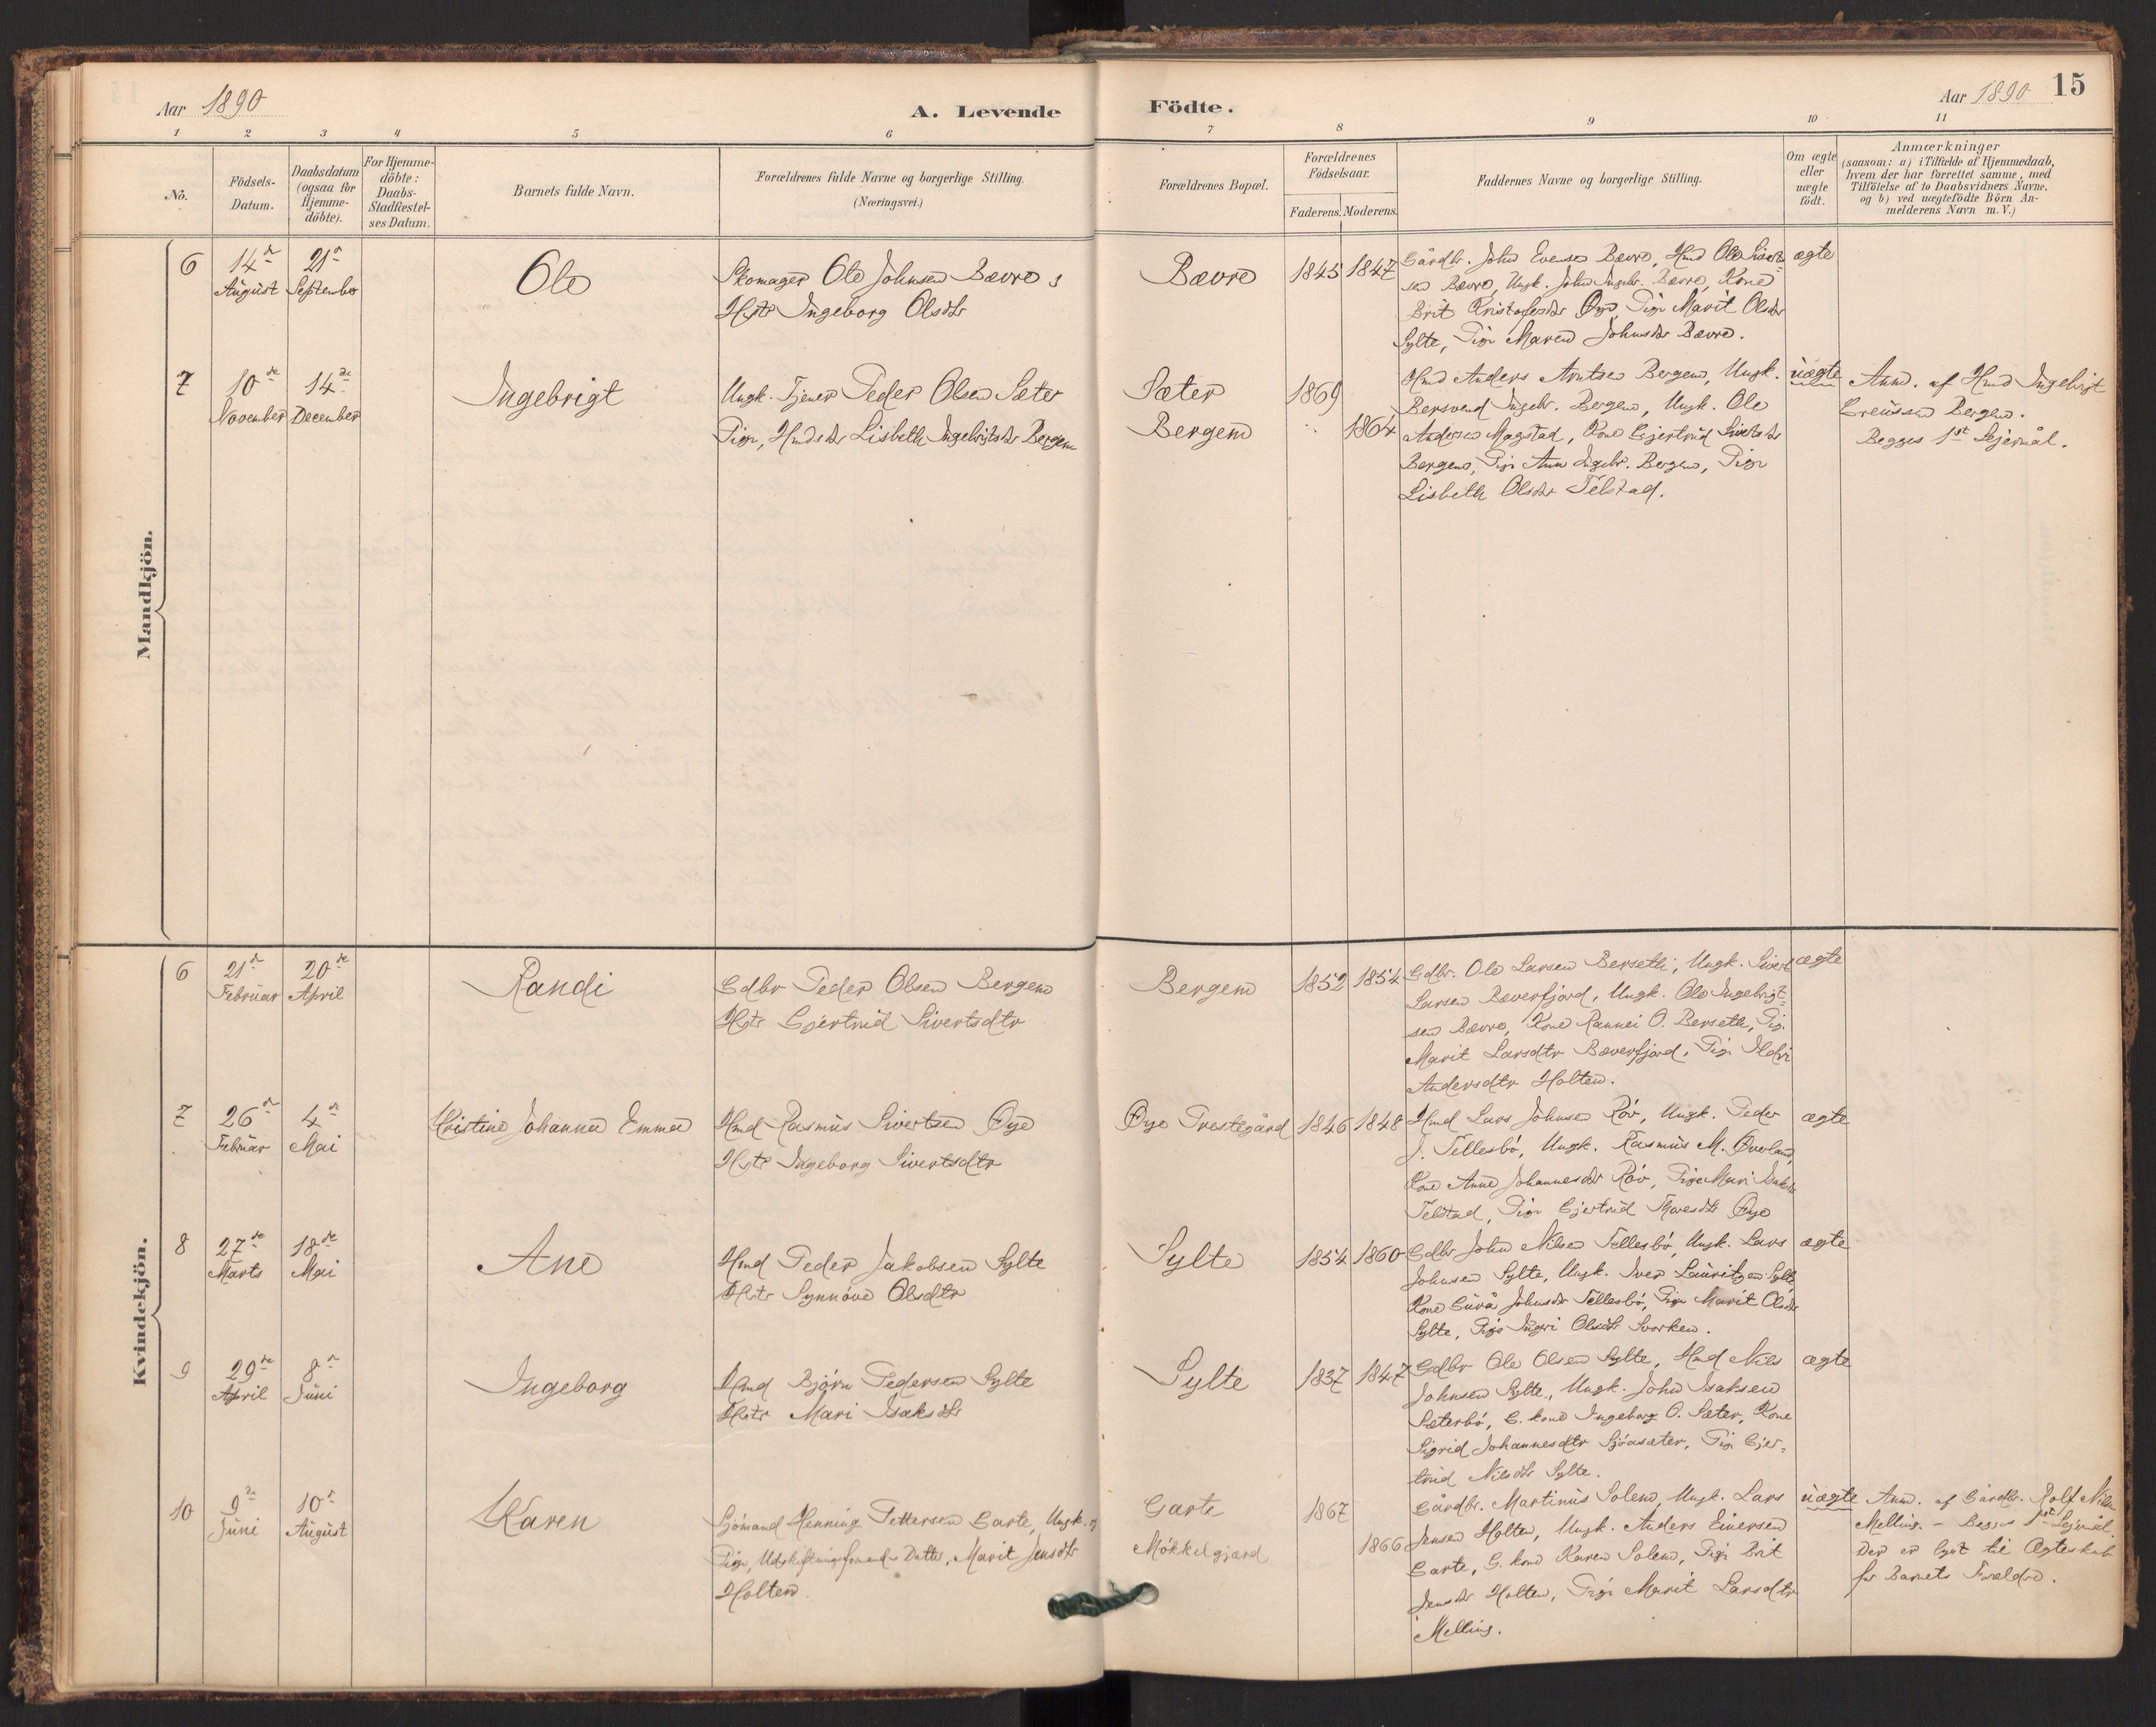 Aar 1890
A. Levende Födte.
Aar 1890 15
1 2 3 4 5 6 7 8 9 10 11
No.
Födsels-
Datum.
Daabsdatum
(ogsaa for
Hjemme-
döbte).
For Hjemme-
döbte:
Daabs-
Stadfæstel-
ses Datum.
Barnets fulde Navn.
Forældrenes fulde Navne og borgerlige Stilling.
(Næringsvei.)
Forældrenes Bopæl.
Forældrenes
Födselsaar.
Faderens. Moderens.
Faddernes Navne og borgerlige Stilling.
Om ægte
eller
uægte
födt.
Anmærkninger
(saasom: a) i Tilfælde af Hjemmedaab,
hvem der har forrettet samme, med
Tilföielse af to Daabsvidners Navne.
og b) ved uægtefödte Börn An-
melderens Navn m.V.)
Mandkjön.
6
14de
August
21de
September
Ole
Skomager Ole Johnsen Bævre &
Hstr Ingeborg Olsdtr
Bævre
1845 1847
Gårdbr. John Evensen Bævre, Hmd Ole Sivert-
sen Bævre, Ungk. John Ingebr. Bævre, Kone
Brit Kristofersdtr Øye, Pige Marit Olsdtr
Sylte, Pige Maren Johnsdtr Bævre.
ægte
7
10de
November
14de
December
Ingebrigt
Ungk. Tjener Peder Olsen Sæter
Pige, Hmdsdtr Lisbeth Ingebrigtsdtr Bergem
Sæter
Bergem
1869
1864
Hmd Anders Arntsen Bergem, Ungk.
Bersvend Ingebr. Bergem, Ungk. Ole
Andersen Magstad, Kone Gjertrud Sivertsdtr
Bergem, Pige Ane Ingebr. Bergem, Pige
Lisbeth Olsdtr Telstad.
uægte
Anm. af Hmd Ingebrigt
Bergem.
Begges 1st Lejermål.
Kvindekjön.
6
21de
Februar
20de
April
Randi
Gdbr Peder Olsen Bergem
Hstr Gjertrud Sivertsdtr
Bergem
1852 1854
Gdbr. Ole Larsen Berseth, Ungk. Sivert
Larsen Bæverfjord, Ungk. Ole Ingebrigt-
sen Bævre, Kone Rannei O. Berseth, Pig.
Marit Larsdtr Bæverfjord, Pige Ildri
Andersdtr Holten.
ægte
7
26de
Februar
4de
Mai
Kristine Johanna Emma
Hmd Rasmus Sivertsen Øye
Hstr Ingeborg Sivertsdtr
Øye Prestegård
1846 1848
Hmd Lars Johnsen Röv, Ungk. Peder
J. Tellesbö, Ungk. Rasmus M. Øverland,
Kone Anne Johannesdtr Röv, Pige Mari
Telstad, Pige Gjertrud Øye
ægte
8
27de
Marts
18de
Mai
Ane
Hmd Peder Jakobsen Sylte
Hstr Synnöve Olsdtr
Sylte
1854 1860
Gdbr John Nilsen Tellesbö, Ungk. Lars
Johnsen Sylte, Ungk. Iver Lauritzen Sylte,
Kone Gurå Johnsdtr Tellesbö, Pige Marit Olsdtr
Sylte, Pige Ingri Olsdtr Svorken.
ægte
9
29de
April
8de
Juni
Ingeborg
Hmd Björn Pedersen Sylte
Hstr Mari Isaksdtr
Sylte
1837 1847
Gdbr Ole Olsen Sylte, Hmd Nils
Johnsen Sylte, Ungk. John Isaksen
Sæterbö, G. kone Ingeborg O. Sæter, Kone
Sigrid Johannesdtr Sjöasæter, Pige Gjer-
trud Nilsdtr Sylte.
ægte
10
9de
Juni
10de
August
Karen
Sjömand Henning Pettersen Garte, Ungk. og
Pige, Udskiftningsformands Datter, Marit Jensdtr
Holten.
Garte
Mökkelgjærd
1867
1866
Gårdbr. Martinus Solem, Ungk. Lars
Jensen Holten, Ungk. Anders Einersen
Garte, G. kone Karen Solem, Pige Brit
Jensdtr Holten, Pige Marit Larsdtr
Melling.
uægte
Anm. af Gårdbr. Rolf Nilsen
Melling. - Begges 1st Lejermål.
Der er lyst til Ægteskab
for Barnets Forældre.